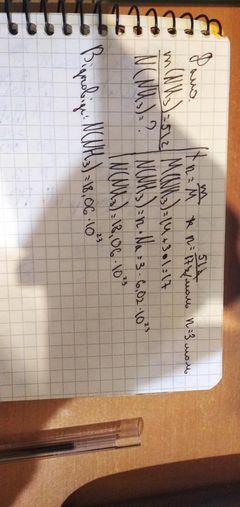 Дано:
m(NH₃)=51г
N(NH₃)=?
* n=m/M * n=51г/17г/моль n=3 моль
M(NH₃)=14+3·1=17
N(NH₃)=n·Na=3·6,02·10²³
N(NH₃)=18,06·10²³
Відповідь: N(NH₃)=18,06·10²³